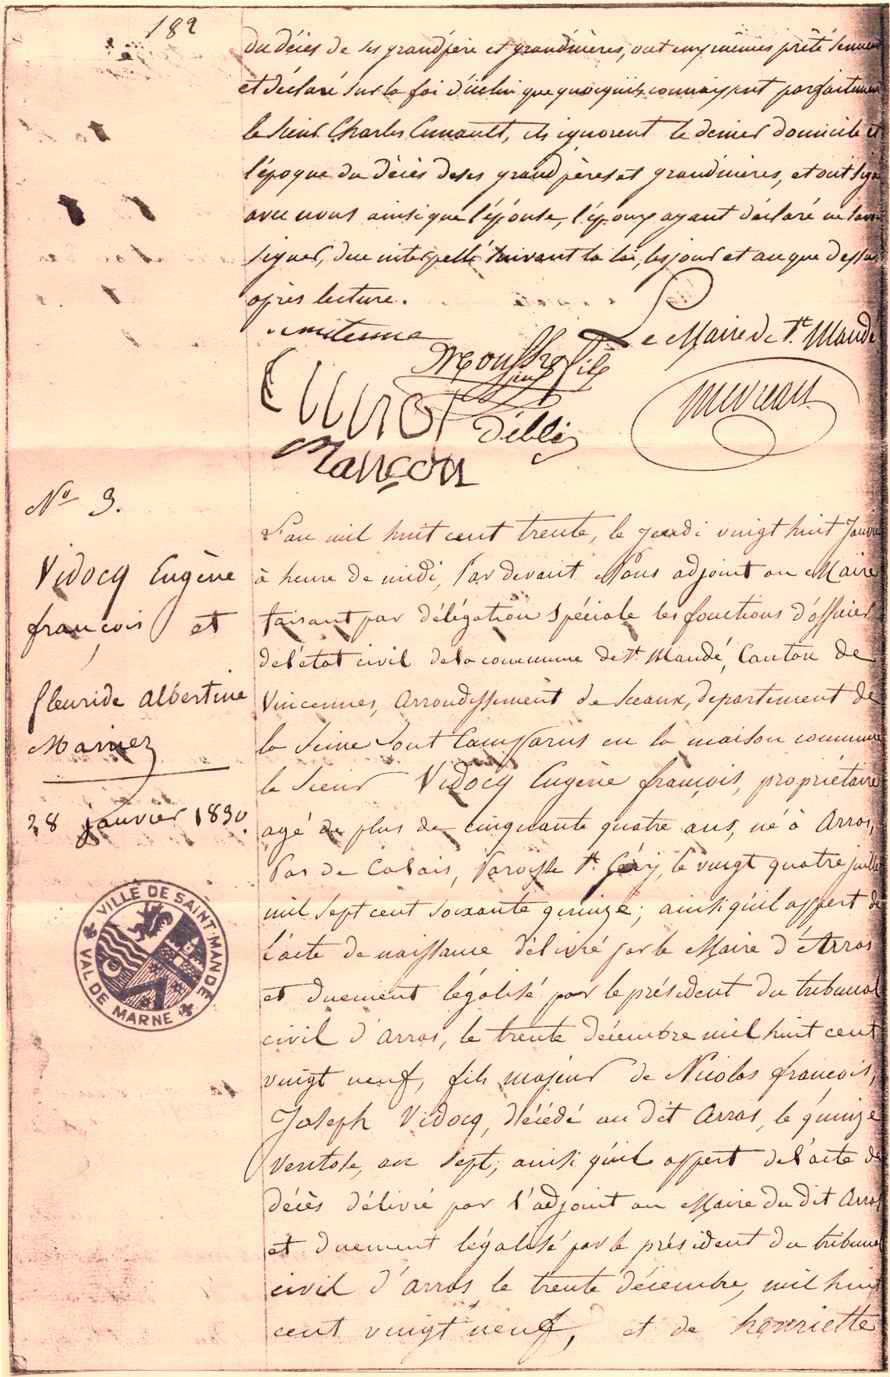 182
du décès de ses grandpère et grandmères, ont eux mêmes prêté serment
et déclaré sur la foi d'icelui que quoiqu'ils connaissent parfaitement
le Sieur Charles Cunault, ils ignorent le dernier domicile et
l'époque du décès de ses grandpères et grandmères, et ont signé
avec nous ainsi que l'épouse, l'époux ayant déclaré ne savoir
signer, de ce interpellé suivant la loi, les jour et an que dessus
après lecture.
Le Maire de St. Mandé
fils
Mançon
No 3.
Vidocq Eugène
françois et
fleuride albertine
Maniez
28 janvier 1830.
VILLE DE SAINT-MANDÉ
VAL DE MARNE
L'an mil huit cent trente, le jeudi vingt huit Janvier
à heure de midi, Par devant Nous adjoint au Maire
faisant par délégation Spéciale les fonctions d'officier
de l'état civil de la commune de St Mandé, Canton de
Vincennes, arrondissement de Sceaux, departement de
la Seine Sont Comparus en la maison commune
le Sieur Vidocq Eugène françois, propriétaire
agé de plus de cinquante quatre ans, né à Arras,
Pas de Calais, Paroisse St. Géry, le vingt quatre juillet
mil sept cent soixante quinze; ainsi qu'il appert de
l'acte de naissance délivré par le Maire d'Arras
et duement légalisé par le président du tribunal
civil d'arras, le trente décembre mil huit cent
vingt neuf, fils majeur de Nicolas françois,
Joseph Vidocq, décédé au dit Arras, le quinze
Ventose, an sept; ainsi qu'il appert de l'acte de
décès délivré par l'adjoint au Maire du dit Arras
et duement légalisé par le président du tribunal
civil d'arras le trente décembre, mil huit
cent vingt neuf, et de henriette